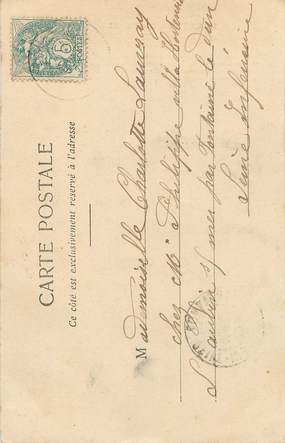 CARTE POSTALE
Ce côté est exclusivement reservé à l'adresse
Mademoiselle Charlotte Launay
chez Mr Philippe villa Hortense
St Aubin s/ mer par Fontaine le dun
Seine Inférieure
5